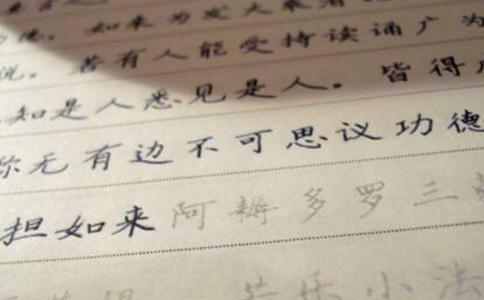 德。如来为发大乘者
说。若有人能受持读诵广为
知是人悉见是人。皆得
称无有边不可思议功德
担如来阿耨多罗三
若乐小法